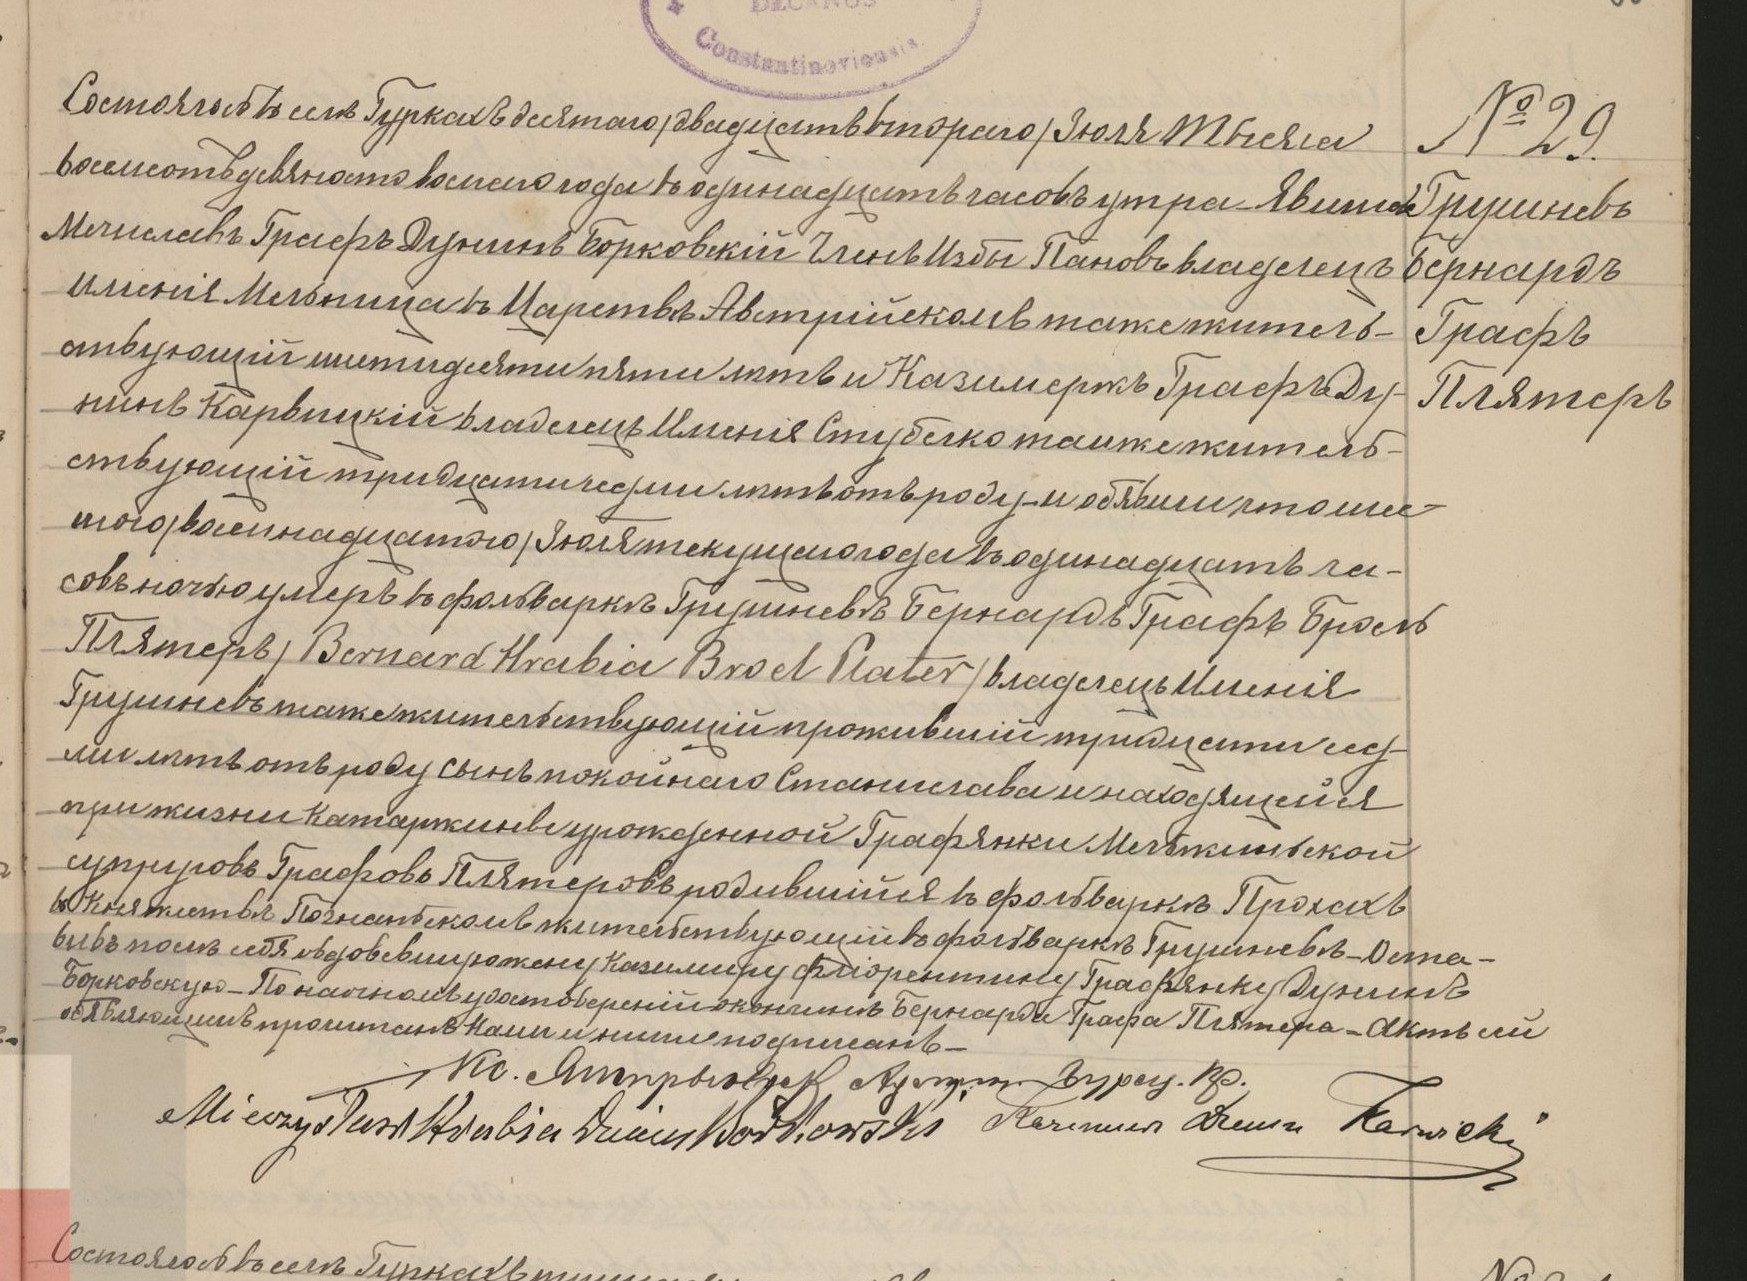 DECANUS
Constantinoviensis.
№ 29.
Грушневъ
Бернардъ
Графъ
Плятеръ
Состоялось въ селѣ Гуркахъ десятаго /двадцать втораго/ Іюля Тысяча
восемьсотъ девяносто восьмого года въ одинадцать часовъ утра – Явился
Мечиславъ Графъ Дунинъ Борковскій Членъ Избы Пановъ владелецъ
имѣнія Мельница въ Царствѣ Австрійскомъ таже житель-
ствующій шестидесяти пяти лѣтъ и Казимержъ Графъ Ду-
нинъ Карвицкій владелецъ Именія Стубелко таиже житель-
ствующій тридцати седми лѣтъ отъ роду – и объявили что шес-
того /восемнадцатого/ Іюля текущаго года въ одинадцать ча-
совъ ночью умеръ въ фольваркѣ Грушневѣ Бернардъ Графъ Броель
Плятеръ / Bernard Hrabia Broel Plater / владелецъ Именія
Грушневъ таже жительствующій проживший тридцати сед-
ми лѣтъ отъ роду сынъ покойнаго Станислава и находящейся
при жизни Катаржины урожденной Графянки
супруговъ Графовъ Плятеровъ родившійся въ фольваркѣ Прохахъ
въ Княжествѣ Познанскомъ жительствующій въ фольваркѣ Грушневѣ – Оста-
вивъ послѣ себя овдовевшую жену Казимиру Флорентину Графянку Дунинъ
Борковскую – По наочномъ удостовереній о кончинѣ Бернарда Графа Плятера – Актъ сей
объявляющимъ прочитанъ Нами и ними подписанъ –
Кс.
Mieczysław Hrabia Dunin Borkowski Kazimierz Dunin Karwicki
Состоялось въ селѣ Гуркахъ